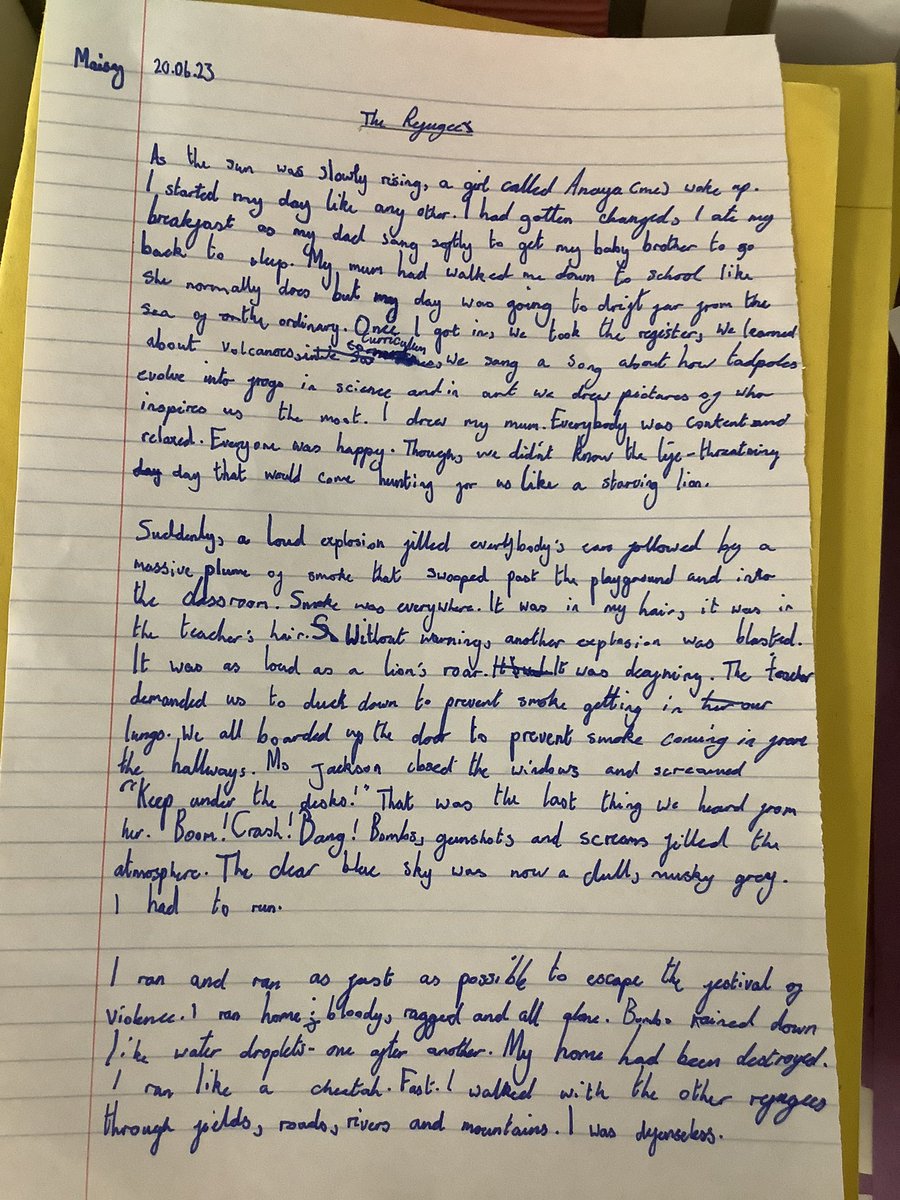 Maisy 20.06.23
The Refugees
As the sun was slowly rising, a girl called Anaya (me) woke up.
I started my day like any other. I had gotten changed, I ate my
breakfast as my dad sang softly to get my baby brother to go
back to sleep. My mum had walked me down to school like
she normally does but my day was going to drift far from the
sea of the ordinary. Once I got in, we took the register, we learned
about volcanoes, curriculum, we sang a song about how tadpoles
evolve into frogs in science and in art we drew pictures of who
inspires us the most. I drew my mum. Everybody was content and
relaxed. Everyone was happy. Though, we didn't know the life-threatning
day day that would come hunting for us like a starving lion.
Suddenly, a loud explosion filled everybody's ears followed by a
massive plume of smoke that swooped past the playground and into
the classroom. Smoke was everywhere. It was in my hair, it was in
the teacher's hair. Without warning, another explosion was blasted.
It was as loud as a lion's roar. It was deafning. The teacher
demanded us to duck down to prevent smoke getting in our
lungs. We all boarded up the door to prevent smoke coming in from
the hallways. Ms Jackson closed the windows and screamed
"Keep under the desks!" That was the last thing we heard from
her. Boom! Crash! Bang! Bombs, gunshots and screams filled the
atmosphere. The clear blue sky was now a dull, musky grey.
I had to run.
I ran and ran as fast as possible to escape the festival of
violence. I ran home; bloody, ragged and all alone. Bombs rained down
like water droplets- one after another. My home had been destroyed.
I ran like a cheetah. Fast. I walked with the other refugees
through fields, roads, rivers and mountains. I was defenseless.